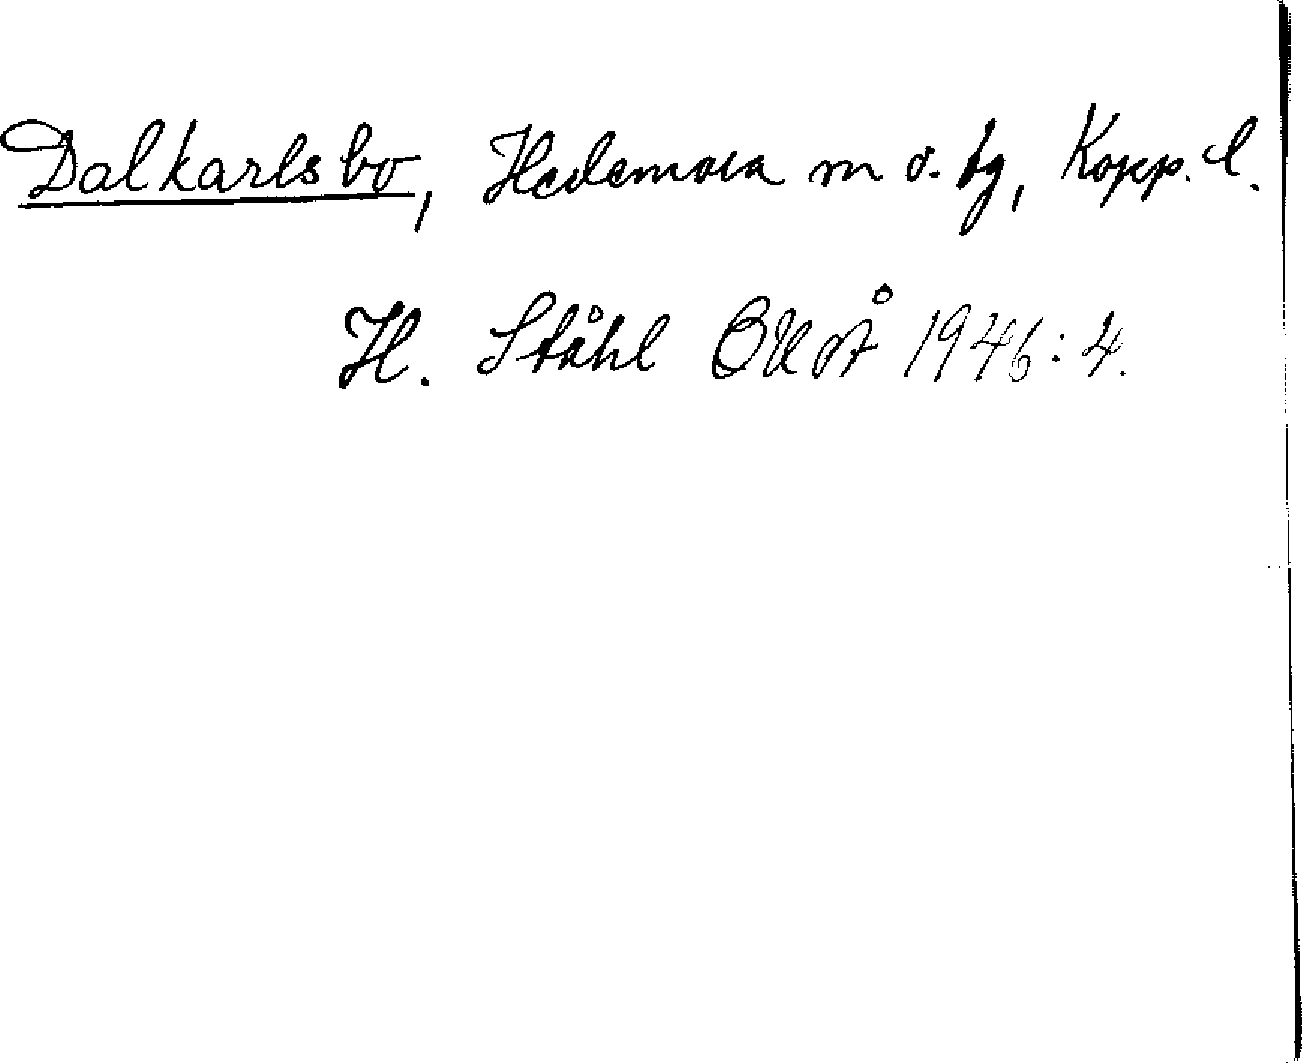 Dalkarlsbo, Hedemora m ö. tg, Kopp. l.
H. Ståhl OUÅ 1946:4.